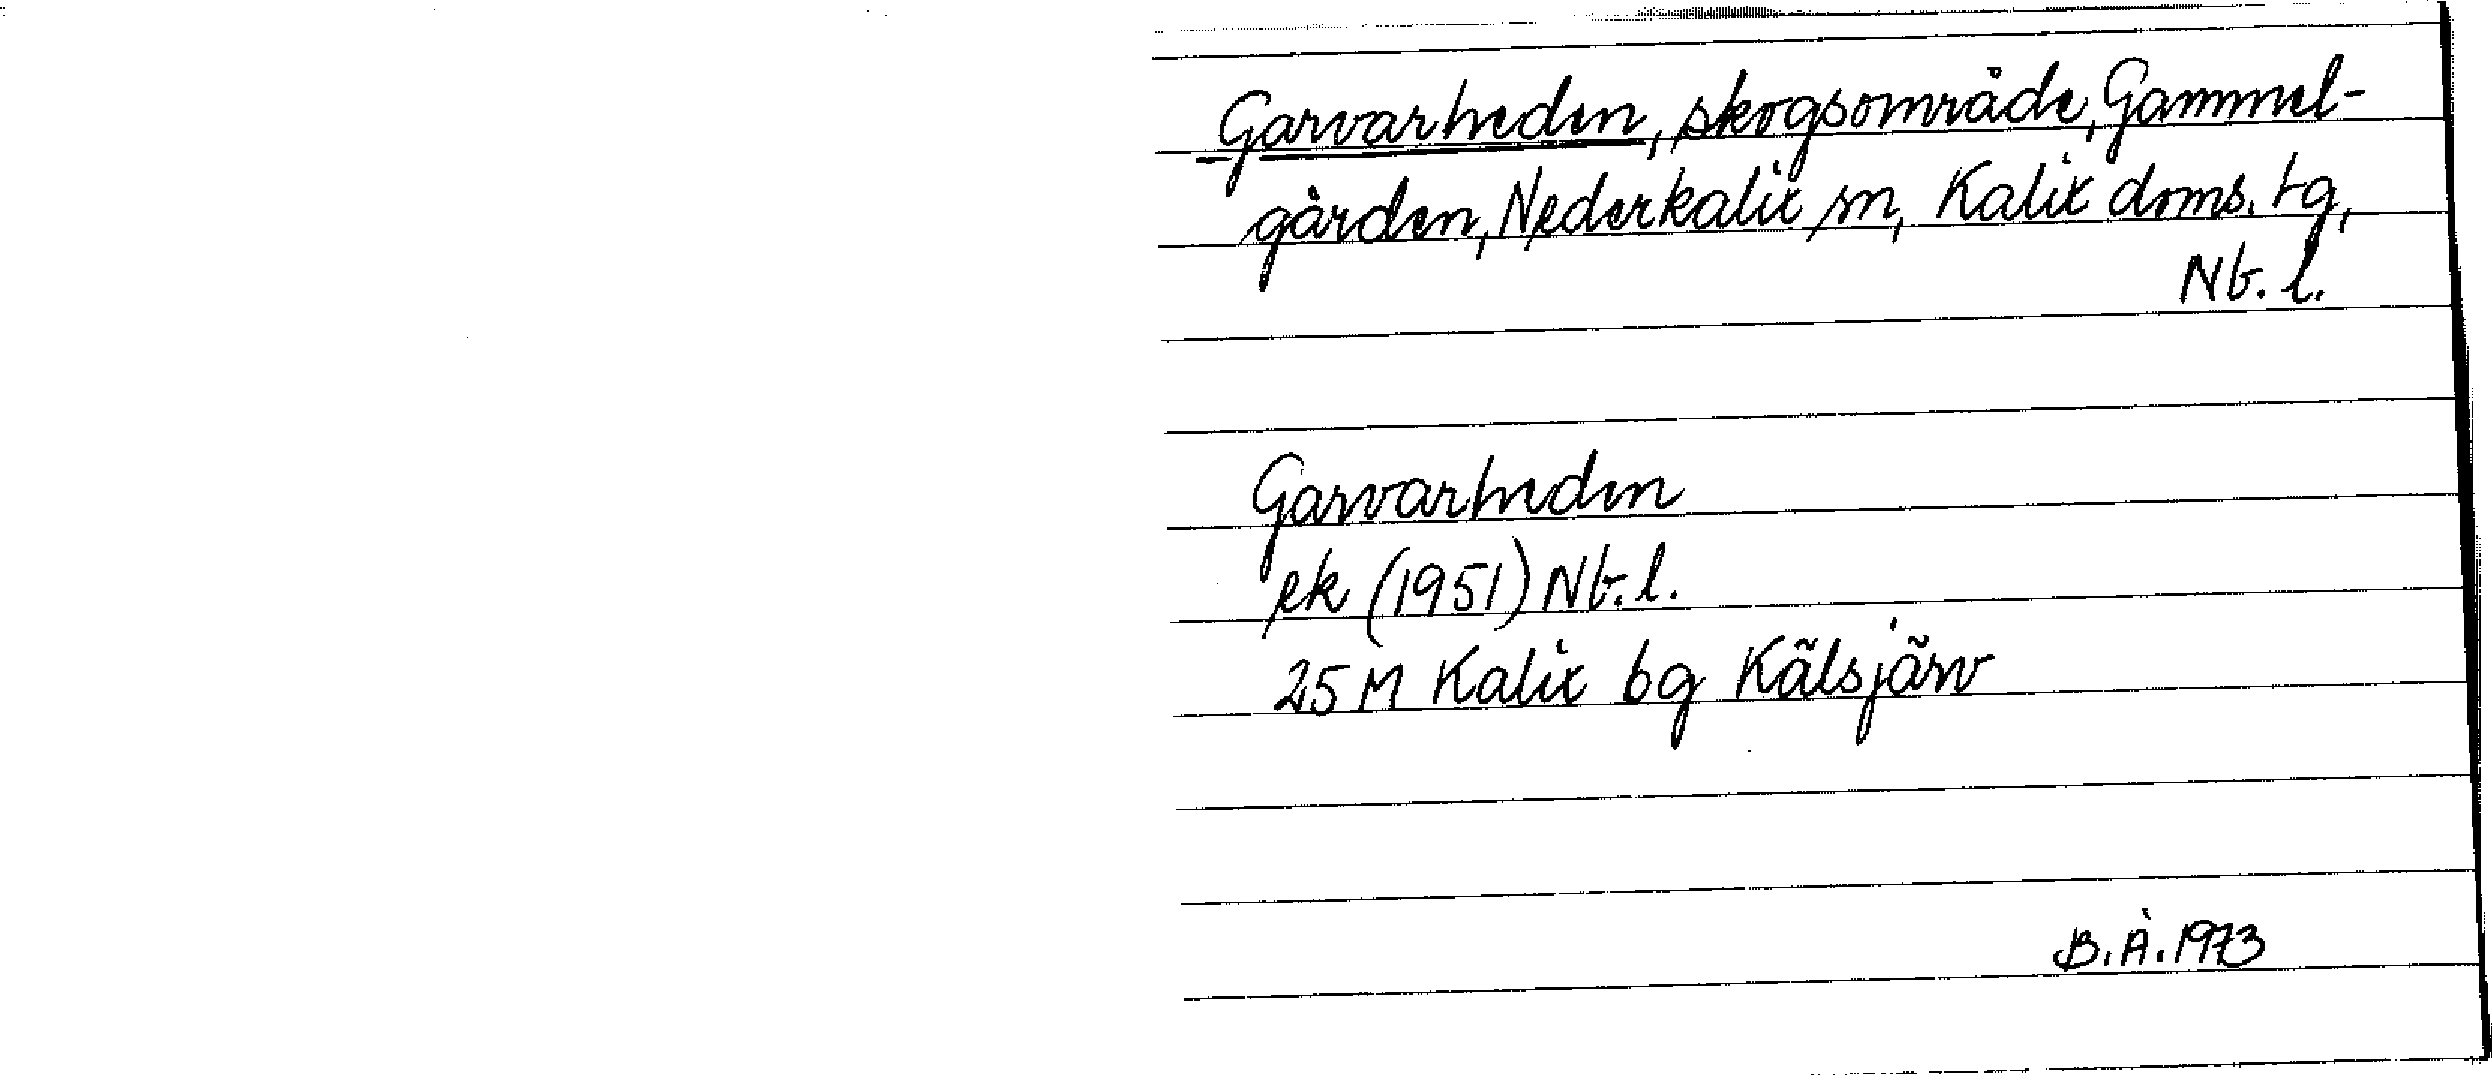 Garvarheden, skogsområde, Gammel-
gården, Nederkalix sn, Kalix doms. tg,
Nb. l.
Garvarheden
ek (1951) Nb. l.
25 M Kalix bg Kälsjärv
B. Å. 1973